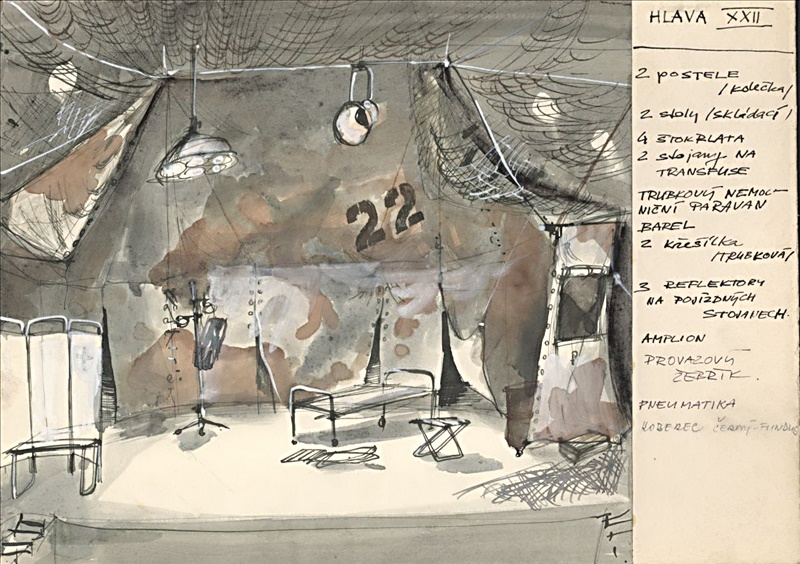 22
HLAVA XXII
2 POSTELE
/kolečka/
2 stoly /skládací/
4 ŠTOKRLATA
2 stojany NA
TRANSFUSE
TRUBKOVÝ NEMOC-
NIČNÍ PARAVAN
BAREL
2 křesílka
/TRUBKOVÁ/
3 REFLEKTORY
NA POJÍZDNÝCH
STOJANECH.
AMPLION
PROVAZOVÝ
ŽEBŘÍK.
PNEUMATIKA
KOBEREC ČERNÝ-FUNDUS